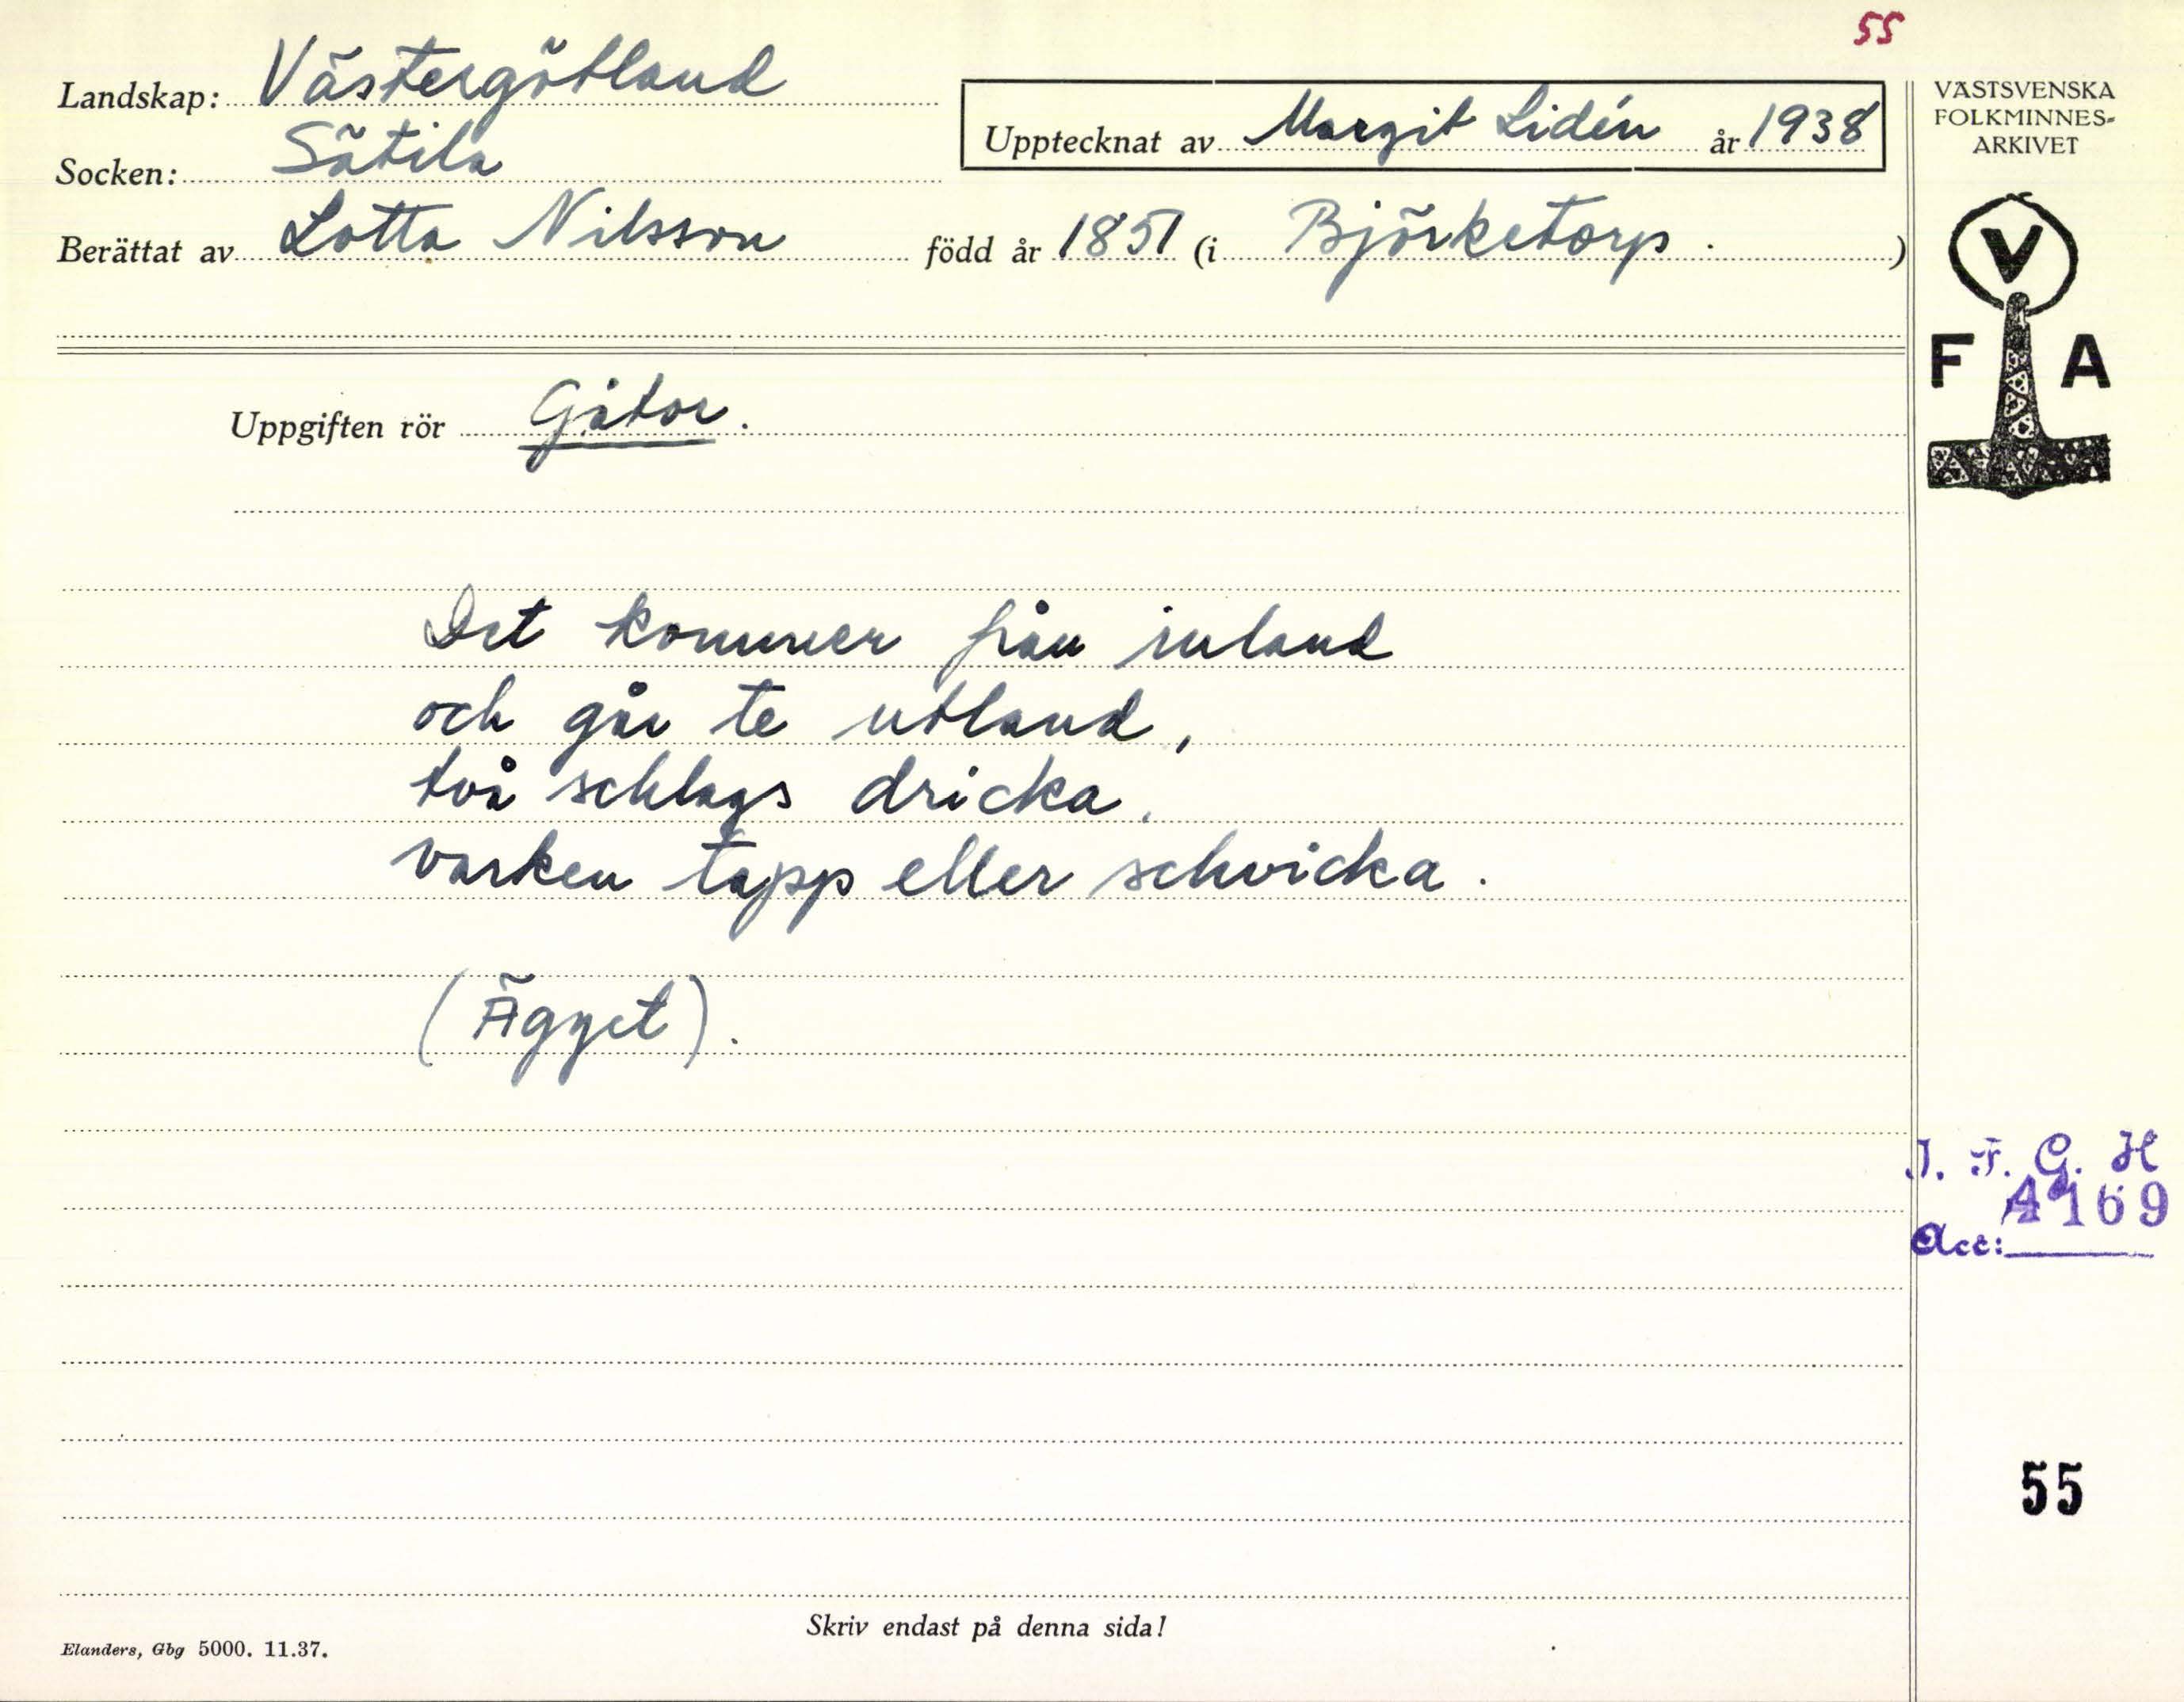 55
Landskap: Västergötland
Socken: Sätila
Berättat av Lotta Nilsson född år 1851 (i Björketorp.)
Upptecknat av Margit Lidén år 1938
VÄSTSVENSKA
FOLKMINNES-
ARKIVET
V
F A
Uppgiften rör Gåtor.
Det kommer från inland
och går te utland,
två schlags dricka,
varken tapp eller schvicka.
(Ägget).
I. F. G. H
4169
Acc:
55
Skriv endast på denna sida!
Elanders, Gbg 5000. 11.37.